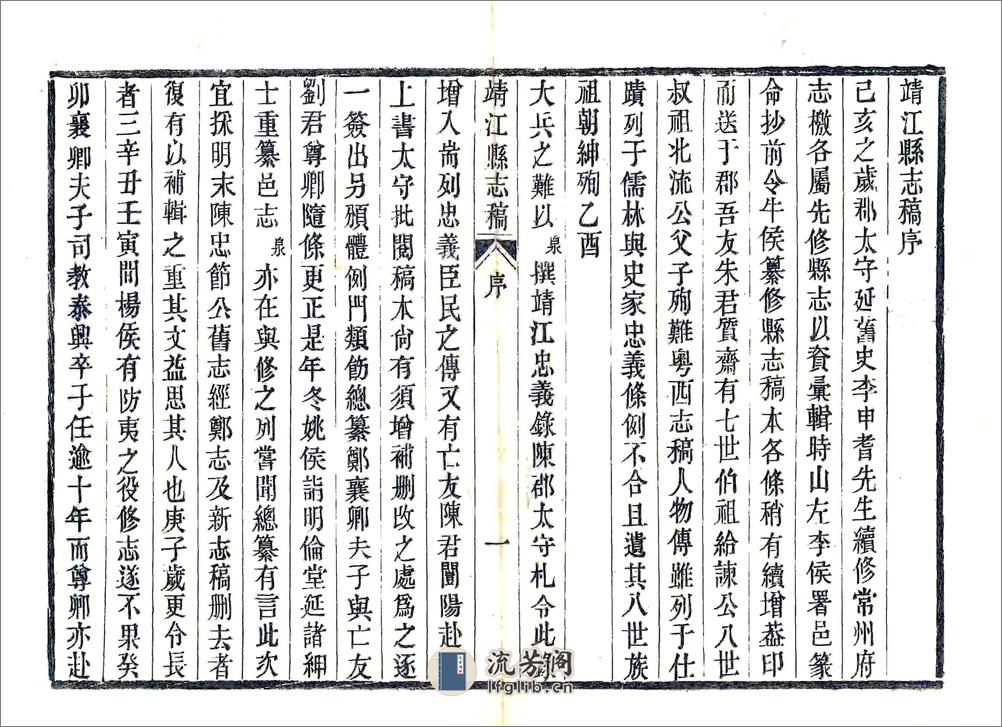 靖江縣志稿序
己亥之歲郡太守延舊史李申耆先生續修常州府
志檄各屬先修縣志以資彙輯時山左李侯署邑篆
命抄前令牛侯纂修縣志稿本各條稍有續增葢印
而送于郡吾友朱君質齋有七世伯祖給諫公八世
叔祖兆流公父子殉難粵西志稿人物傳雖列于仕
蹟列于儒林與史家忠義條例不合且遺其八世族
祖朝紳殉乙酉
大兵之難以泉撰靖江忠義錄陳郡太守札令此
靖江縣志稿 序 一
增入耑列忠義臣民之傳又有亡友陳君闇陽赴
上書太守批閱稿本尙有須增補刪改之處爲之逐
一簽出另頒體例門類飭總纂鄭襄卿夫子與亡友
劉君尊卿隨條更正是年冬姚侯詣明倫堂延諸紳
士重纂邑志泉亦在與修之列嘗聞總纂有言此次
宜採明末陳忠節公舊志經鄭志及新志稿刪去者
復有以補輯之重其文益思其人也庚子歲更令長
者三辛丑壬寅間楊侯有防夷之役修志遂不果癸
卯襄卿夫子司教泰興卒于任逾十年而尊卿亦赴
流芳閣
lfglib.cn